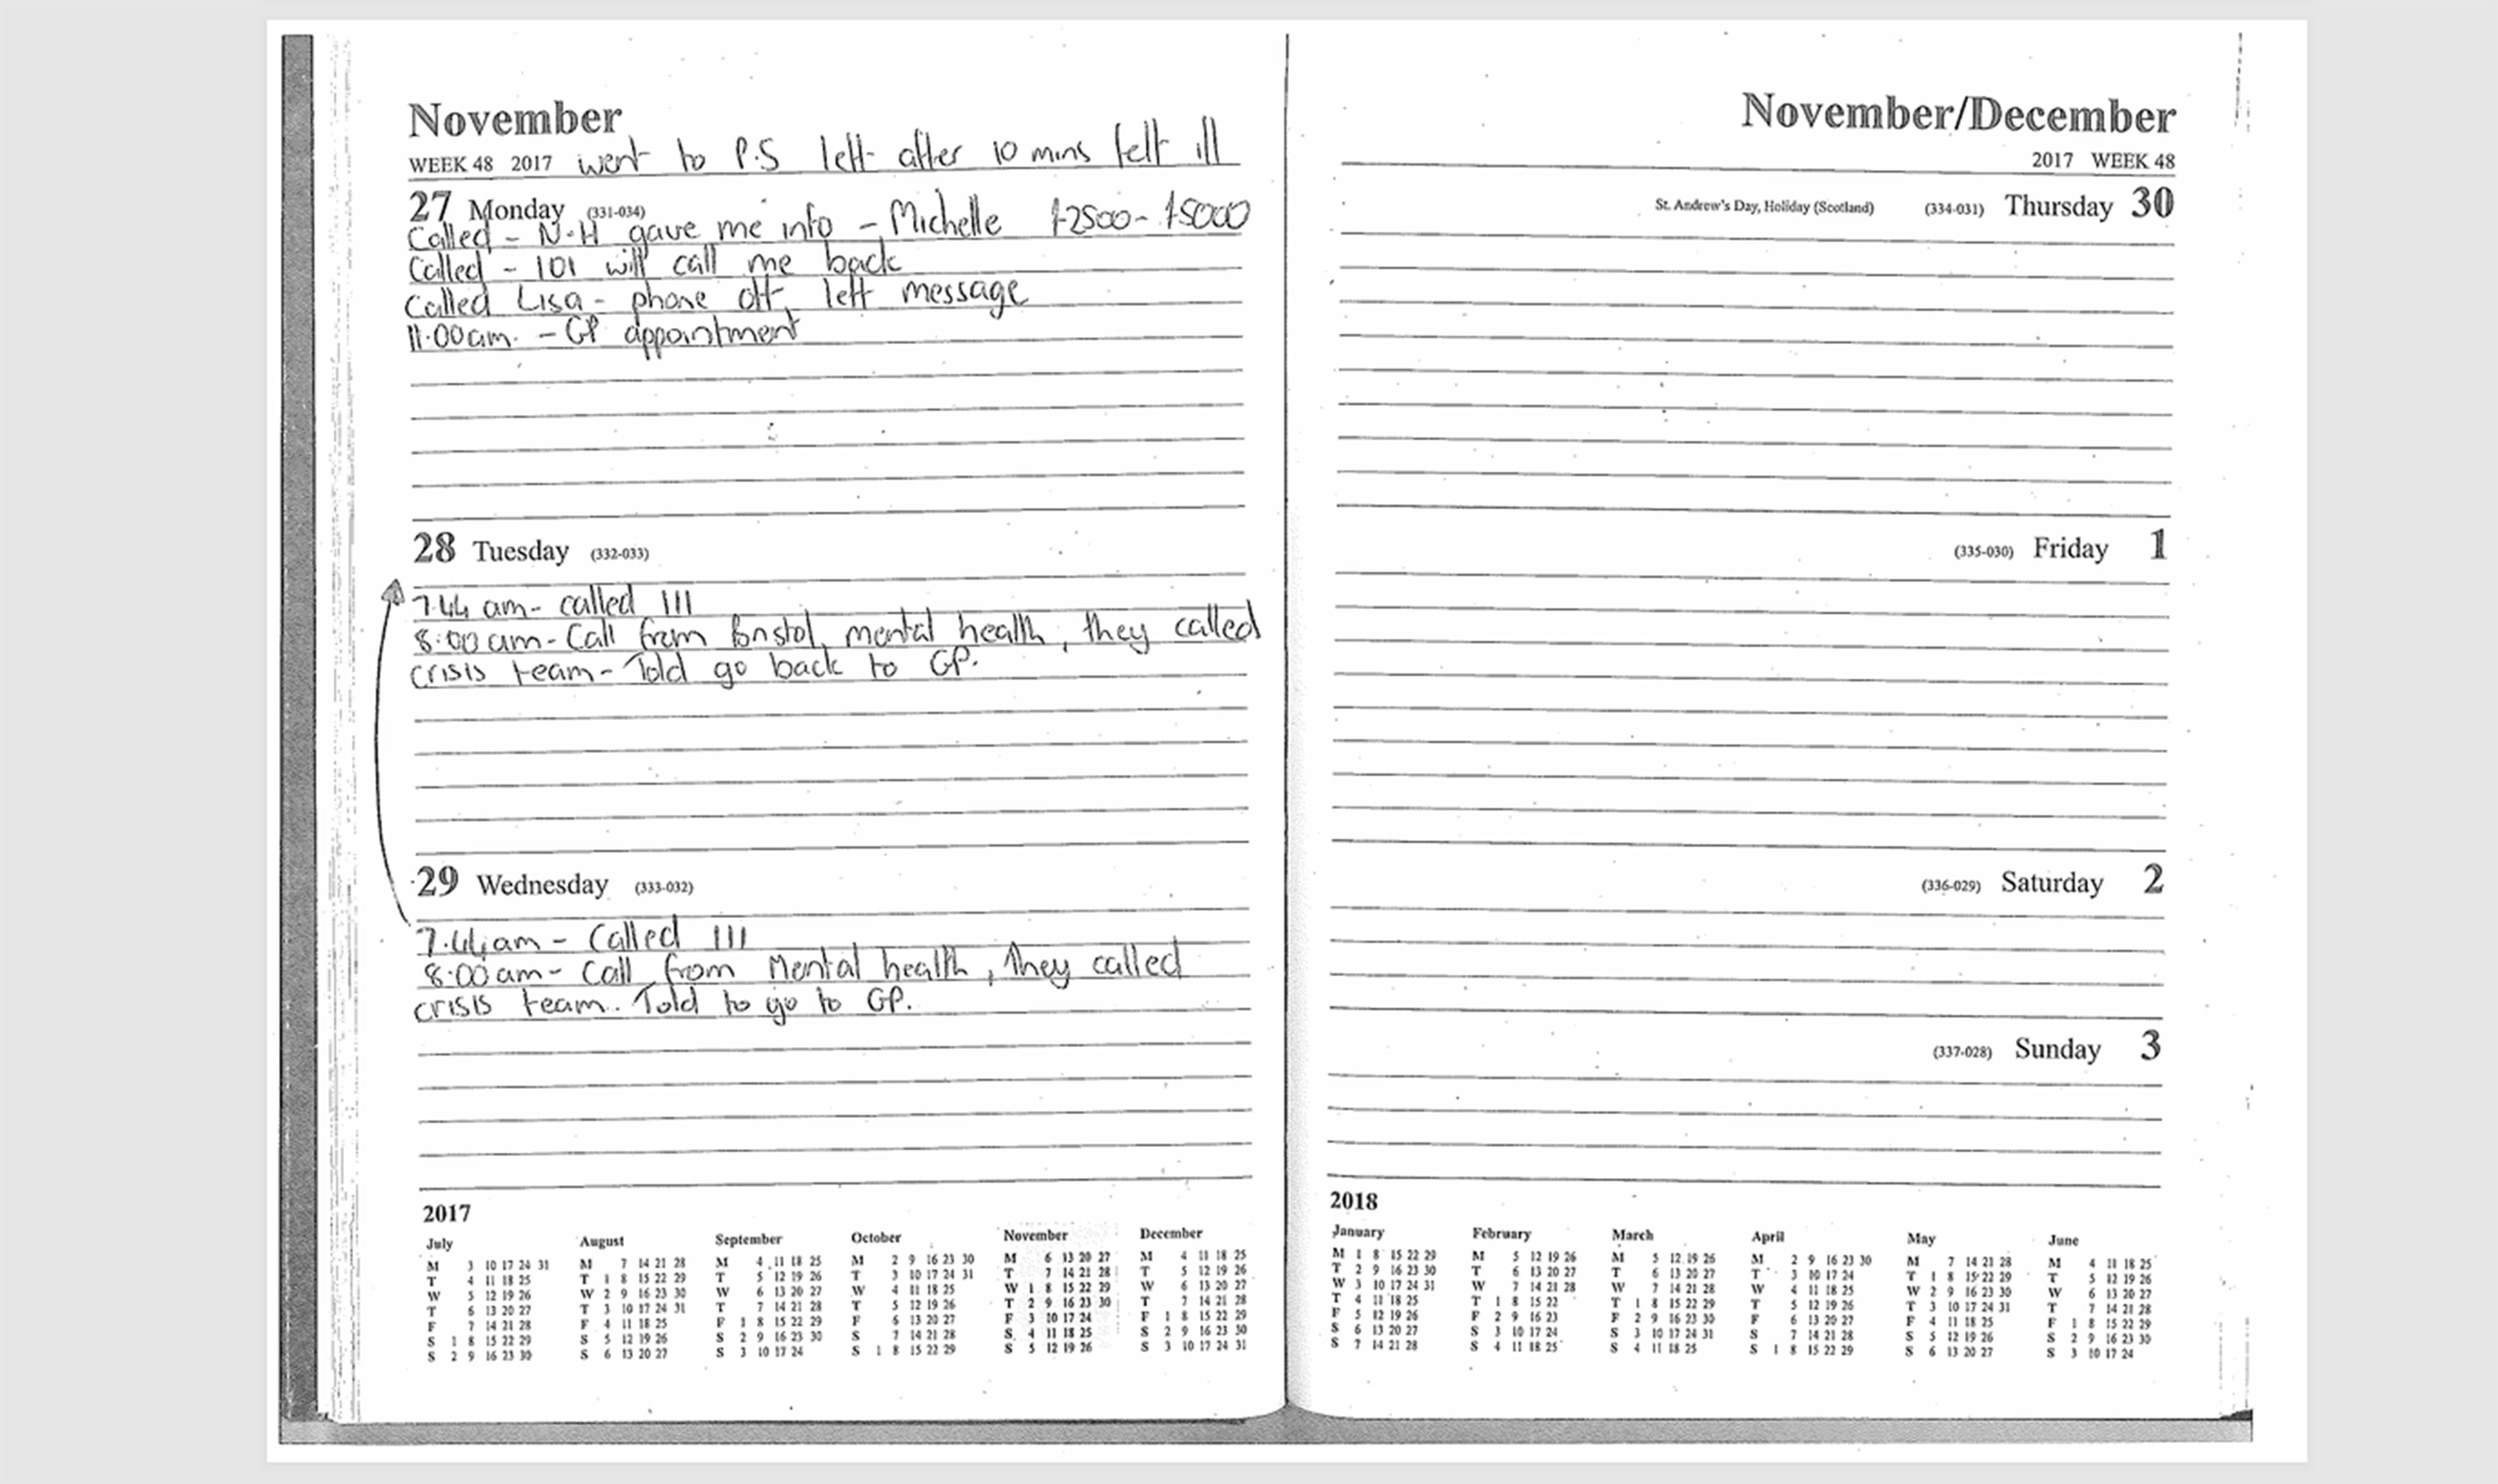 November
WEEK 48 2017 went to P.S left after 10 mins felt ill
27 Monday (331-034)
Called - N.H gave me info - Michelle 1-2500 - 1-5000
Called - 101 will call me back
Called Lisa - phone off, left message
11.00am. - GP appointment
28 Tuesday (332-033)
7.44 am - called 111
8.00 am - Call from Bristol, mental health, they called
crisis team - Told go back to GP.
29 Wednesday (333-032)
7.44am - Called 111
8.00am - Call from Mental health, they called
crisis team. Told to go to GP.
2017
July August September October November December
M 3 10 17 24 31 M 7 14 21 28 M 4 11 18 25 M 2 9 16 23 30 M 6 13 20 27 M 4 11 18 25
T 4 11 18 25 T 1 8 15 22 29 T 5 12 19 26 T 3 10 17 24 31 T 7 14 21 28 T 5 12 19 26
W 5 12 19 26 W 2 9 16 23 30 W 6 13 20 27 W 4 11 18 25 W 1 8 15 22 29 W 6 13 20 27
T 6 13 20 27 T 3 10 17 24 31 T 7 14 21 28 T 5 12 19 26 T 2 9 16 23 30 T 7 14 21 28
F 7 14 21 28 F 4 11 18 25 F 1 8 15 22 29 F 6 13 20 27 F 3 10 17 24 F 1 8 15 22 29
S 1 8 15 22 29 S 5 12 19 26 S 2 9 16 23 30 S 7 14 21 28 S 4 11 18 25 S 2 9 16 23 30
S 2 9 16 23 30 S 6 13 20 27 S 3 10 17 24 S 1 8 15 22 29 S 5 12 19 26 S 3 10 17 24 31
November/December
2017 WEEK 48
St. Andrew's Day, Holiday (Scotland) (334-031) Thursday 30
(335-030) Friday 1
(336-029) Saturday 2
(337-028) Sunday 3
2018
January February March April May June
M 1 8 15 22 29 M 5 12 19 26 M 5 12 19 26 M 2 9 16 23 30 M 7 14 21 28 M 4 11 18 25
T 2 9 16 23 30 T 6 13 20 27 T 6 13 20 27 T 3 10 17 24 T 1 8 15 22 29 T 5 12 19 26
W 3 10 17 24 31 W 7 14 21 28 W 7 14 21 28 W 4 11 18 25 W 2 9 16 23 30 W 6 13 20 27
T 4 11 18 25 T 1 8 15 22 T 1 8 15 22 29 T 5 12 19 26 T 3 10 17 24 31 T 7 14 21 28
F 5 12 19 26 F 2 9 16 23 F 2 9 16 23 30 F 6 13 20 27 F 4 11 18 25 F 1 8 15 22 29
S 6 13 20 27 S 3 10 17 24 S 3 10 17 24 31 S 7 14 21 28 S 5 12 19 26 S 2 9 16 23 30
S 7 14 21 28 S 4 11 18 25 S 4 11 18 25 S 1 8 15 22 29 S 6 13 20 27 S 3 10 17 24